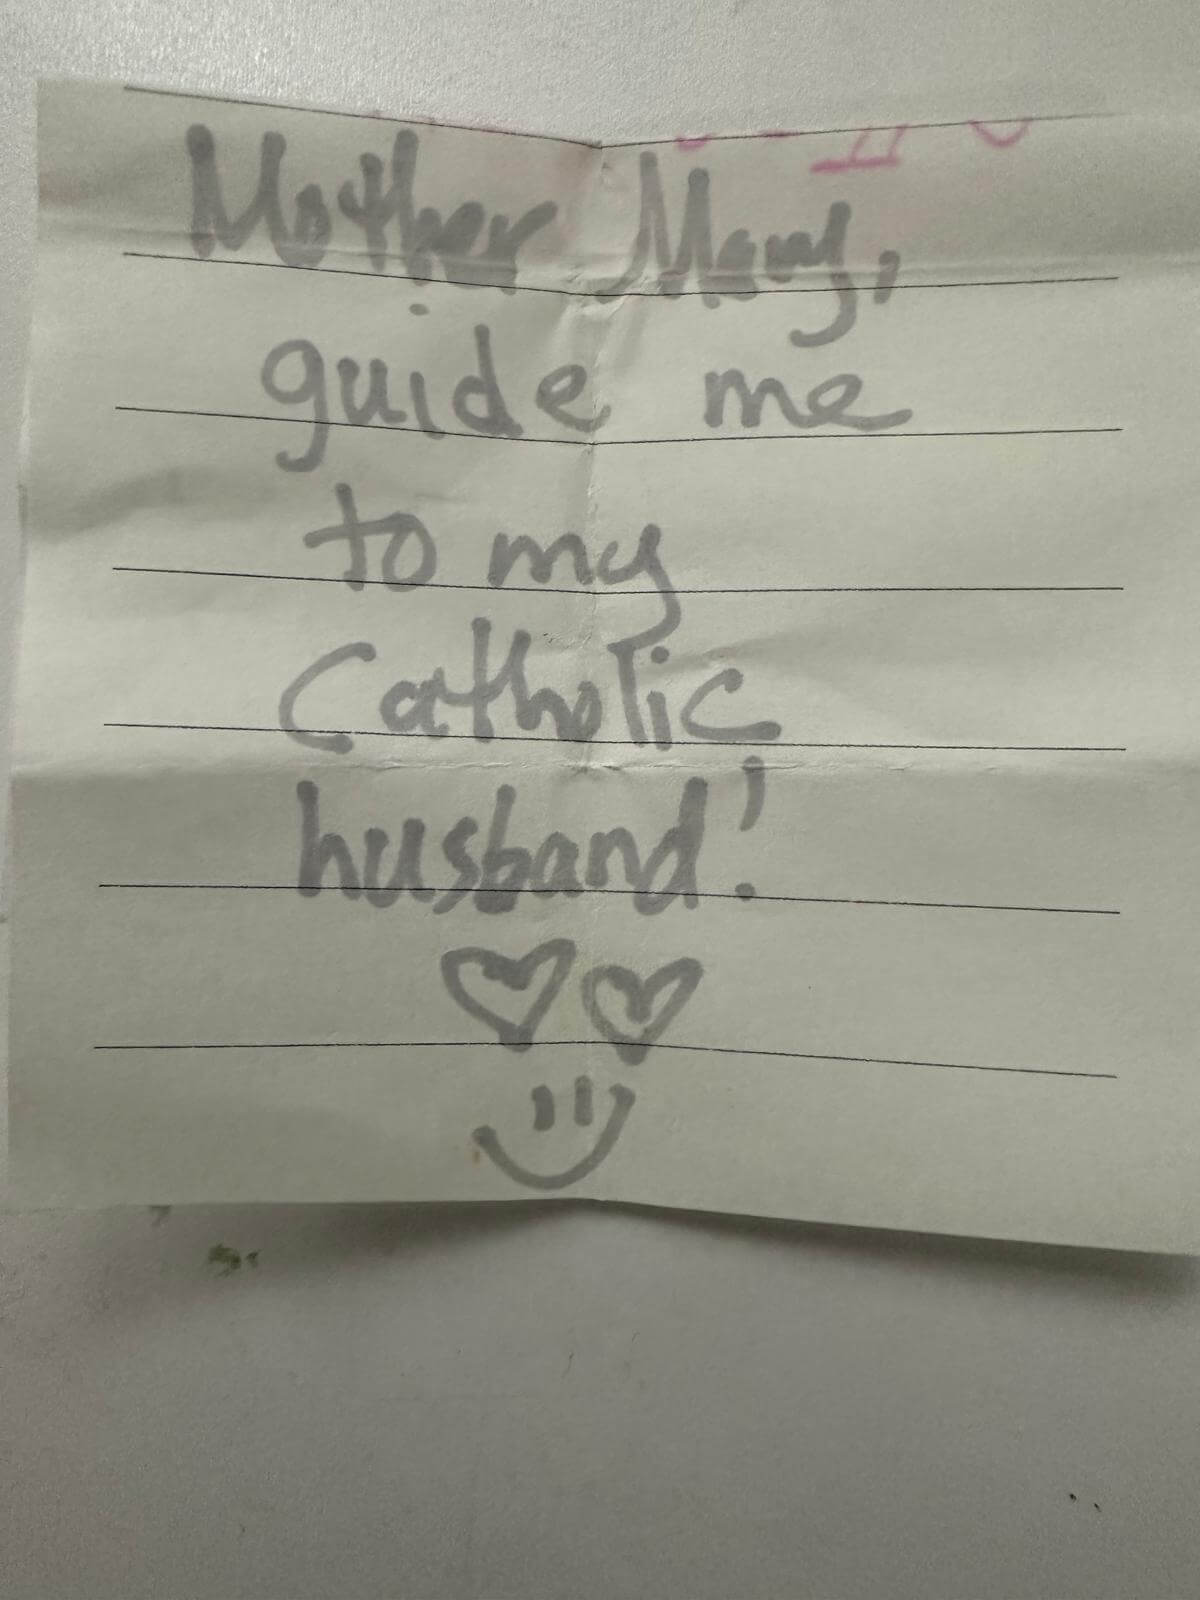 Mother Mary,
guide me
to my
Catholic
husband!